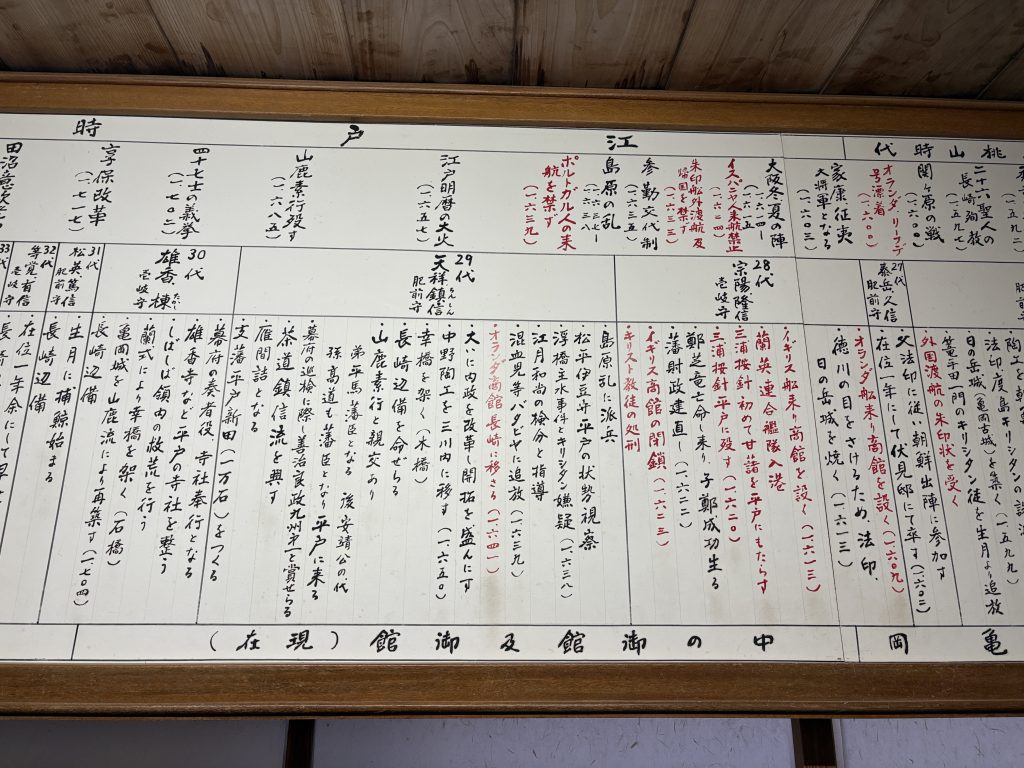 桃山時代
江戸時
二六聖人の
長崎殉教
(一五九七)
関ヶ原の戦
オランダリーフデ
号漂着
(一六〇〇)
家康征夷
大将軍となる
(一六〇三)
大阪冬夏の陣
(一六一四ー
一六一五
イスパニヤ来航禁止
(一六二四)
朱印船外渡航及
帰国を禁ず
(一六三三)
参勤交代制
(一六三五)
島原の乱
(一六三七ー
一六三八)
ポルトガル人の来
航を禁ず
(一六三九)
江戸明暦の大火
(一六五七)
山鹿素行歿す
(一六八五)
四十七士の義挙
(一七〇二)
享保改革
(一七一七)
27代
泰岳久信
肥前守
28代
宗陽隆信
壱岐守
29代
天祥鎮信
肥前守
30代
雄香 棟
壱岐守
31代
松英篤信
肥前守
32代
等覚有信
壱岐守
33代
法印、度島にキリシタンの
日の岳城(亀岡古城)を築く(一五九九)
篭手田一門のキリシタン徒を生月より追放
外国渡航の朱印状を受く
・父法印に従い朝鮮出陣に参加す
・在位一年にして伏見邸にて卒す(一六〇二)
・オランダ船来り商館を設く(一六〇九)
・徳川の目をさけるため、法印、
日の岳城を焼く(一六一三)
・イギリス船来り商館を設く(一六一三)
・蘭英連合艦隊入港
・三浦按針初めて甘藷を平戸にもたらす
・三浦按針平戸に歿す(一六二〇)
・鄭芝竜亡命し来り、子鄭成功生る
・藩財政建直し(一六二二)
・イギリス商館の閉鎖(一六二三)
・キリスト教徒の処刑
・島原乱に派兵
・松平伊豆守平戸の状勢視察
・浮橋主水事件とキリシタン嫌疑
・江月和尚の検分と指導(一六三八)
・混血児等バダビヤに追放(一六三九)
・オランダ商館長崎に移さる(一六四一)
・大いに内政を改革し開拓を盛んにす
・中野陶工を三川内に移す(一六五〇)
・幸橋を架く(木橋)
・長崎辺備を命ぜらる
・山鹿素行と親交あり
弟平馬藩臣となる 後安靖公の代
孫高道も藩臣となり平戸に来る
・幕府巡検に際し善治良政九州第一と賞せらる
・茶道鎮信流を興す
・雁間詰となる
・支藩平戸新田(一万石)をつくる
・幕府の奏者役 寺社奉行となる
・雄香寺など平戸の寺社を整う
・しばしば領内の救荒を行う
・蘭式により幸橋を架く(石橋)
・亀岡城を山鹿流により再築す(一七〇四)
・長崎辺備
・生月に捕鯨始まる
・長崎辺備
・在位一年余にして
亀岡
中の御館及御館(現在)